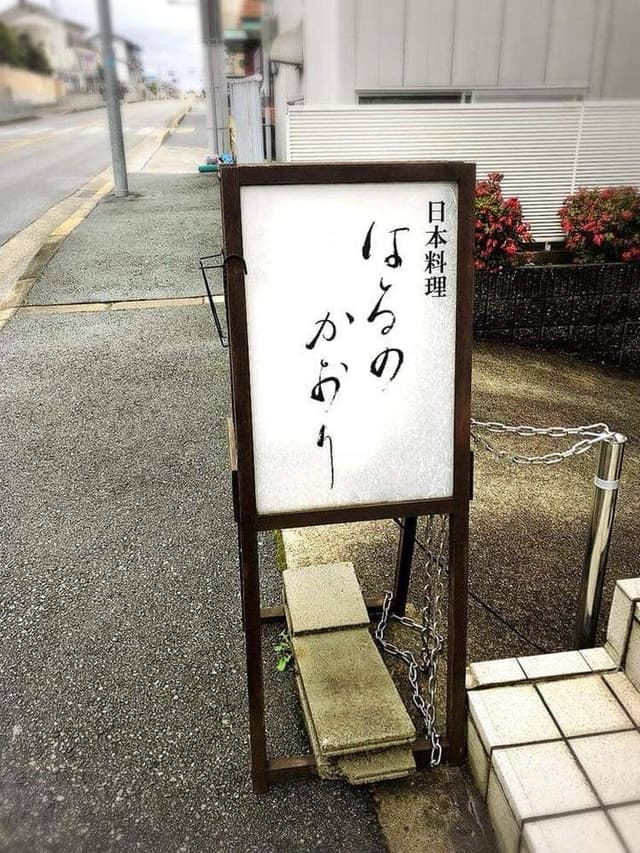 日本料理
はるの
かおり